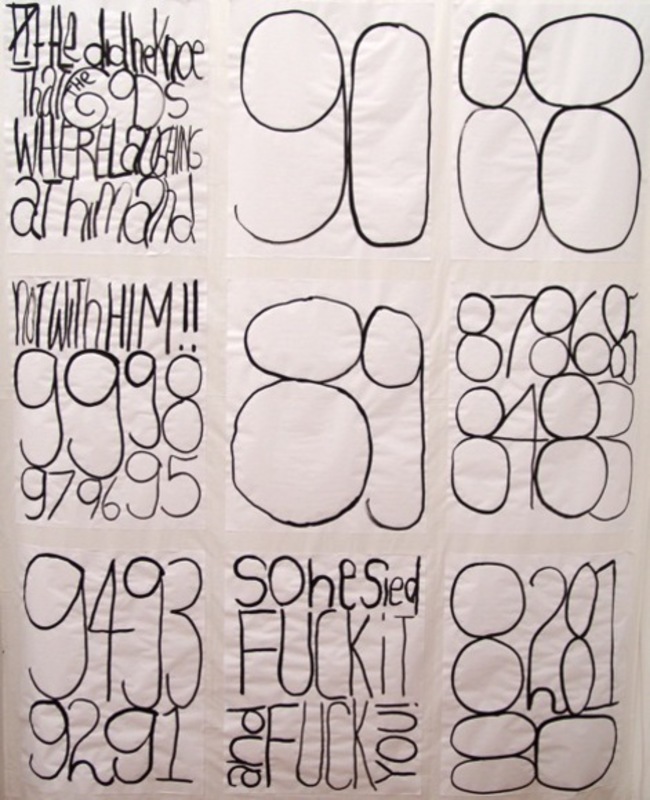 HE did he Knoe
That THE GODS
WHERE LaUGHING
aT him and
noT wiTh HIM!!
99 98
97 96 95
94 93
92 91
90
89
SO he Sied
FUCK iT
and FUCK YOU!
88
87 86 85
84 83
82 81
80